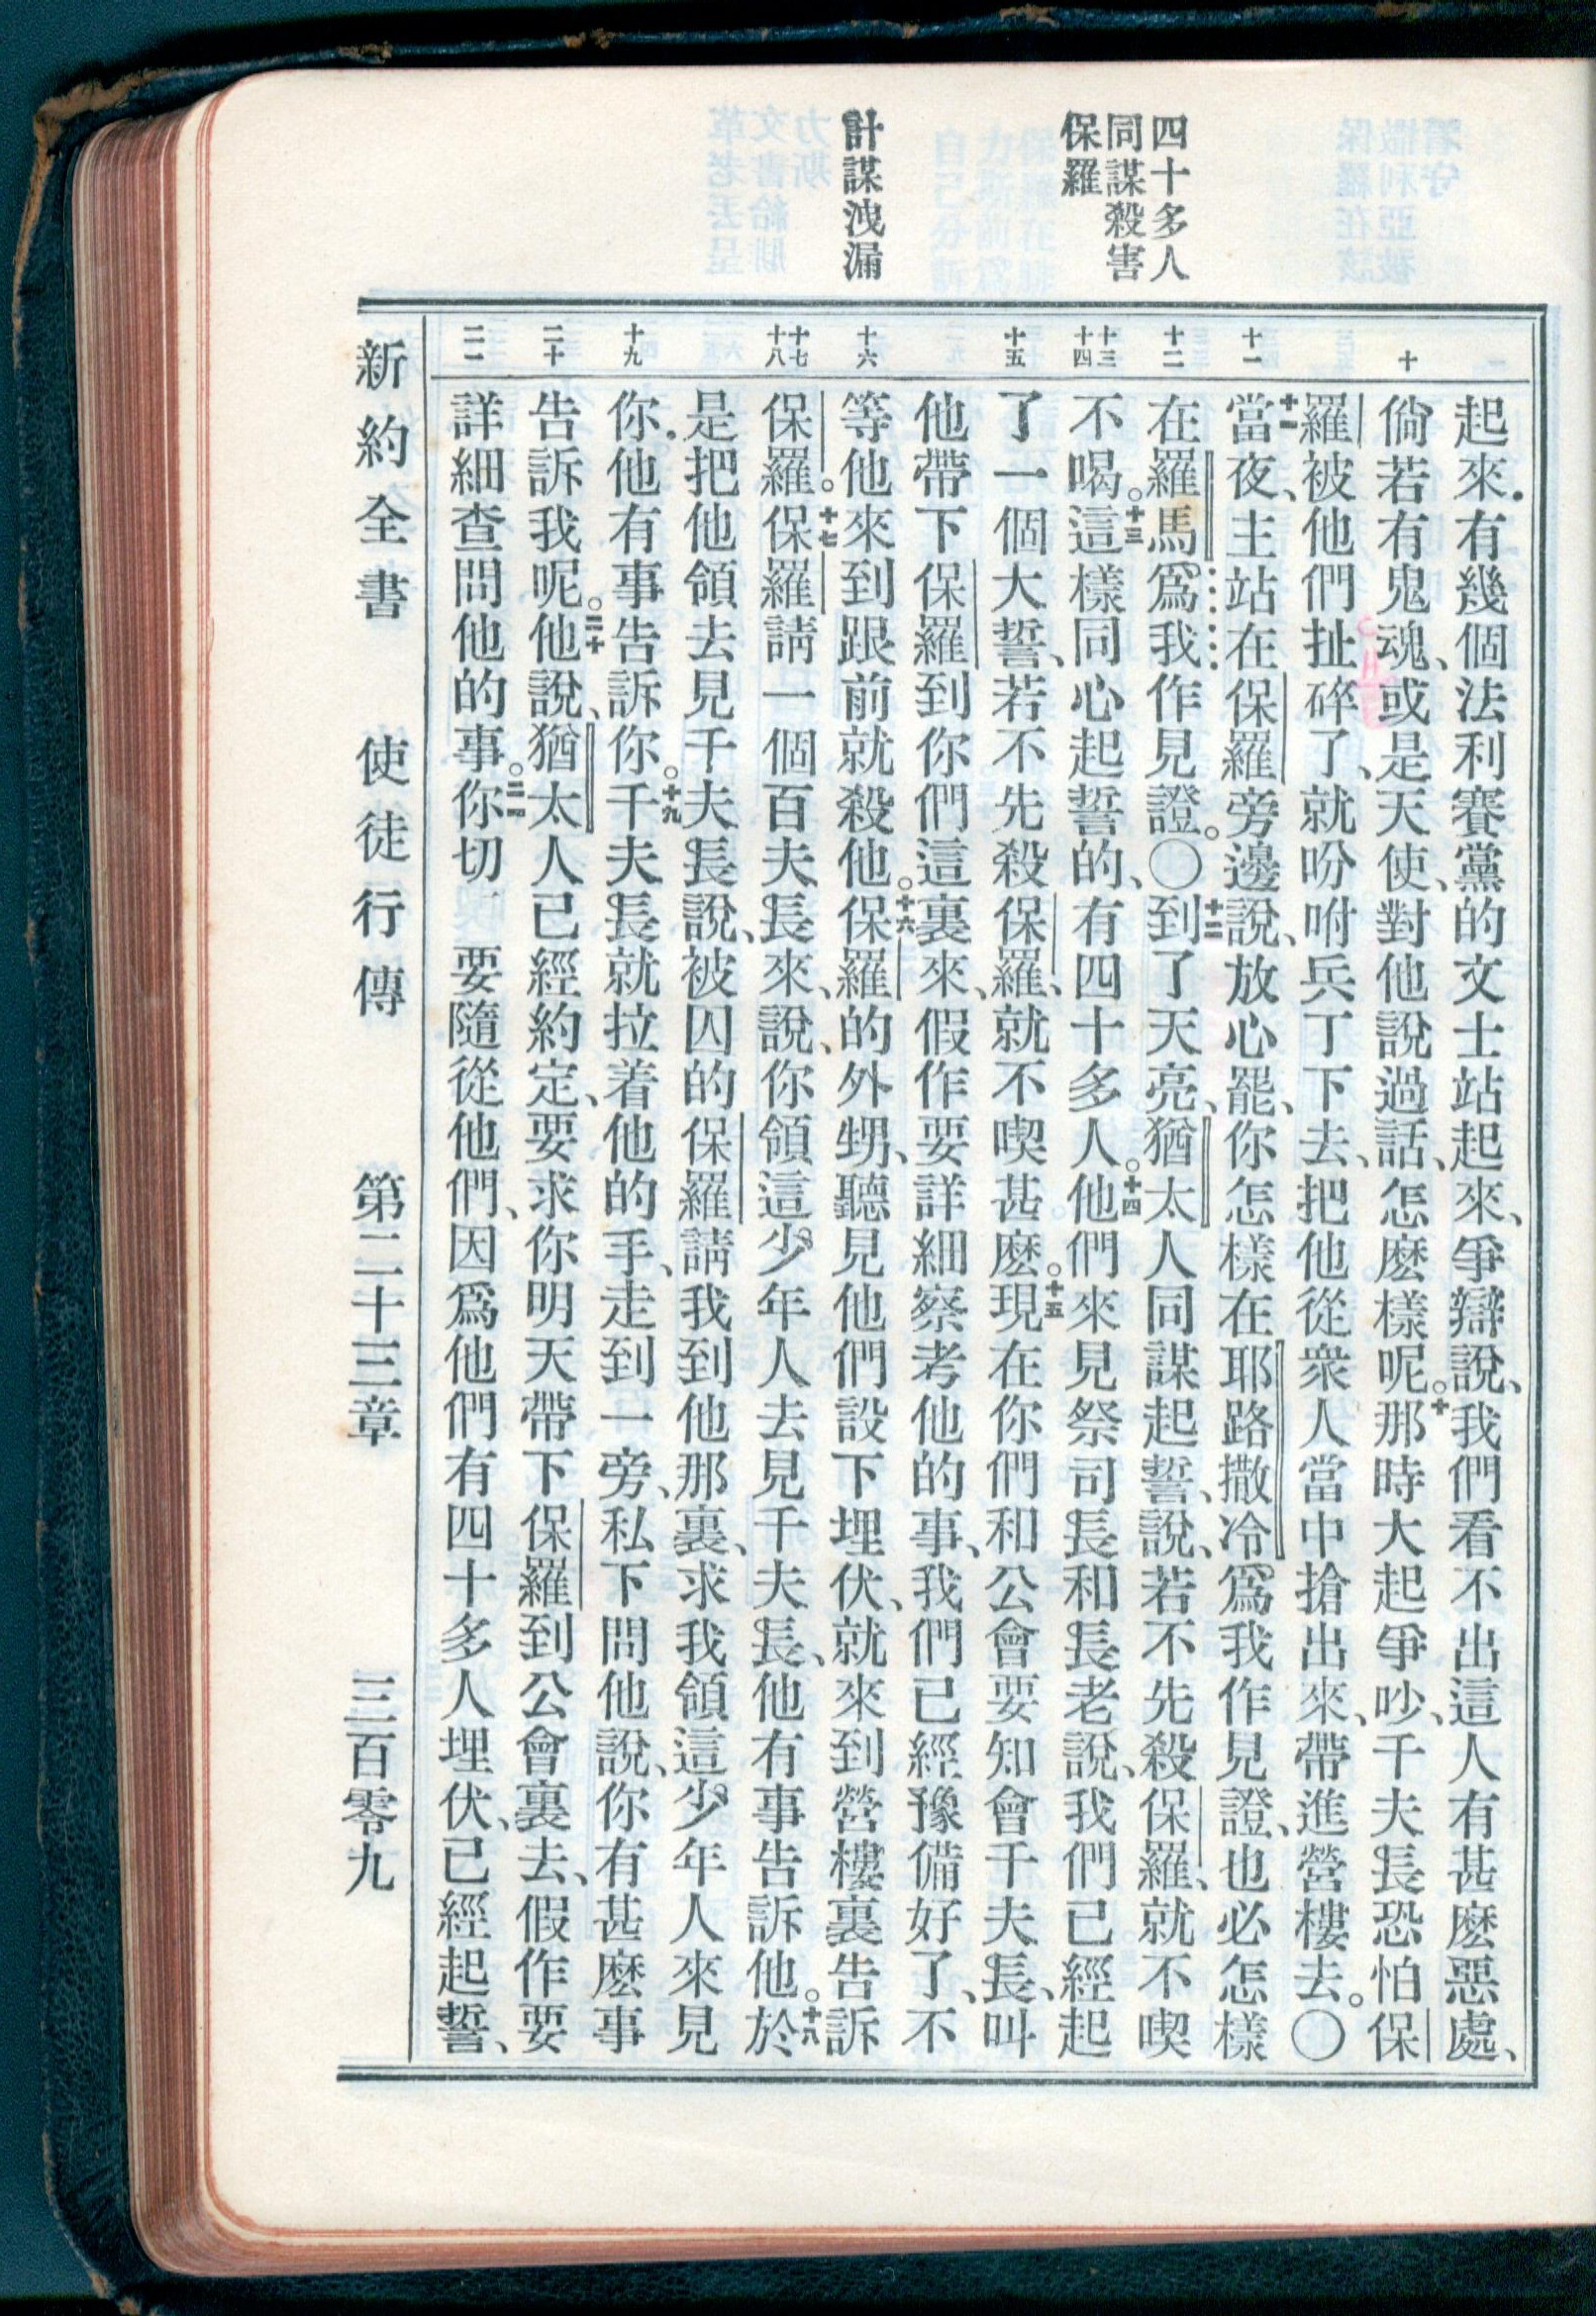 四十多人
同謀殺害
保羅
計謀洩漏
十
十一
十二
十三
十四
十五
十六
十七
十八
十九
二十
二一
起來．有幾個法利賽黨的文士站起來、爭辯說、我們看不出這人有甚麽惡處、
倘若有鬼魂、或是天使、對他說過話、怎麽樣呢。十那時大起爭吵、千夫長恐怕保
羅被他們扯碎了、就吩咐兵丁下去、把他從衆人當中搶出來、帶進營樓去。〇
十一當夜、主站在保羅旁邊說、放心罷、你怎樣在耶路撒冷爲我作見證、也必怎樣
在羅馬爲我作見證。〇十二到了天亮、猶太人同謀起誓、說、若不先殺保羅、就不喫
不喝。十三這樣同心起誓的、有四十多人。十四他們來見祭司長和長老說、我們已經起
了一個大誓、若不先殺保羅、就不喫甚麽。十五現在你們和公會要知會千夫長、叫
他帶下保羅到你們這裏來、假作要詳細察考他的事、我們已經豫備好了、不
等他來到跟前就殺他。十六保羅的外甥、聽見他們設下埋伏、就來到營樓裏告訴
保羅。十七保羅請一個百夫長來、說、你領這少年人去見千夫長、他有事告訴他。十八於
是把他領去見千夫長說、被囚的保羅請我到他那裏、求我領這少年人來見
你．他有事告訴你。十九千夫長就拉着他的手、走到一旁、私下問他說、你有甚麽事
告訴我呢。二十他說、猶太人已經約定、要求你明天帶下保羅到公會裏去、假作要
詳細查問他的事。二一你切 要隨從他們、因爲他們有四十多人埋伏、已經起誓、
新約全書 使徒行傳 第二十三章 三百零九